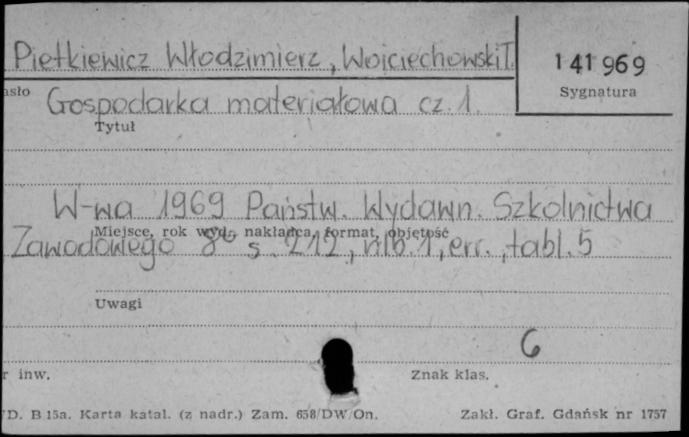 Pietkiewicz Włodzimierz, Wojciechowski T.
141969
Sygnatura
asło
Gospodarka materiałowa cz. 1.
Tytuł
W-wa 1969 Państw. Wydawn. Szkolnictwa
Miejsce, rok wyd., nakładca, format, objętość
Zawodowego 8° s. 212, nlb. 1, err., tabl. 5
Uwagi
6
r inw.
Znak klas.
D. B 15a. Karta katal. (z nadr.) Zam. 638/DW/On.
Zakł. Graf. Gdańsk nr 1757